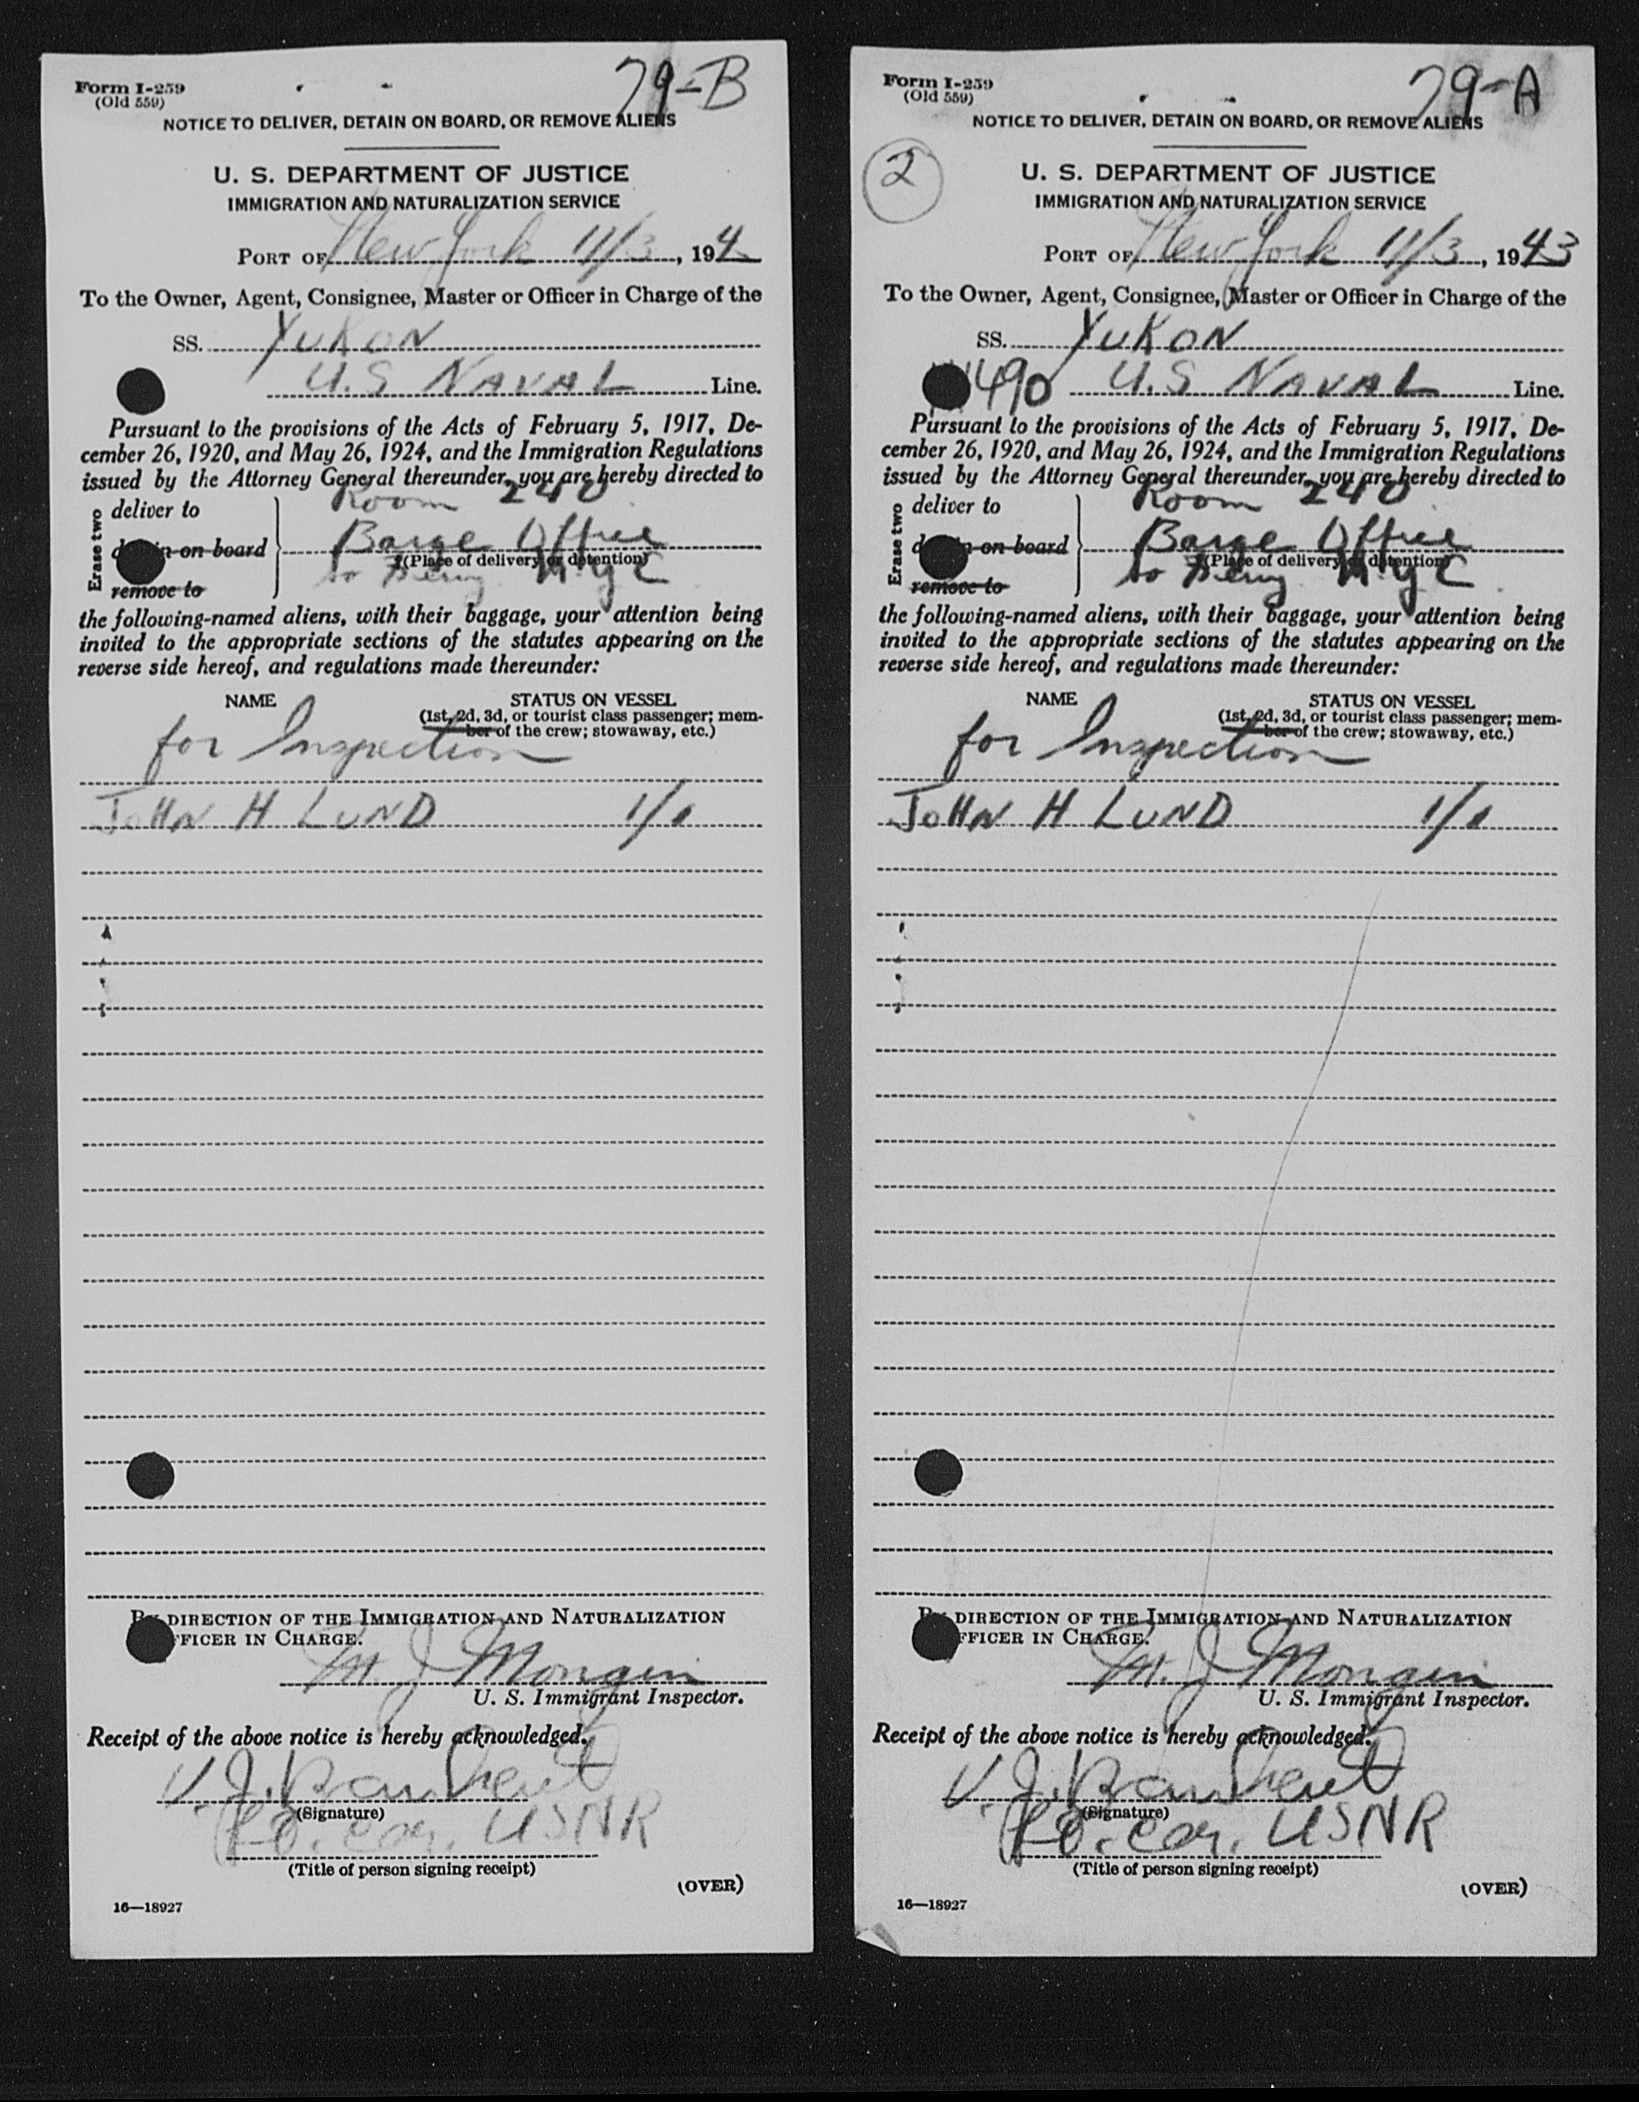 Form I-259
(Old 559)
79-B
NOTICE TO DELIVER, DETAIN ON BOARD, OR REMOVE ALIENS
U. S. DEPARTMENT OF JUSTICE
IMMIGRATION AND NATURALIZATION SERVICE
PORT OF New York 11/3, 194
To the Owner, Agent, Consignee, Master or Officer in Charge of the
SS. YUKON
U.S NAVAL Line.
Pursuant to the provisions of the Acts of February 5, 1917, De-
cember 26, 1920, and May 26, 1924, and the Immigration Regulations
issued by the Attorney General thereunder, you are hereby directed to
Room 240
deliver to
Erase two
on board
Barge Office
(Place of delivery or detention)
remove to
So Ferry N.Y.C
the following-named aliens, with their baggage, your attention being
invited to the appropriate sections of the statutes appearing on the
reverse side hereof, and regulations made thereunder:
NAME
STATUS ON VESSEL
(1st, 2d, 3d, or tourist class passenger; mem-
ber of the crew; stowaway, etc.)
for Inspection
JOHN H LUND 1/1
BY DIRECTION OF THE IMMIGRATION AND NATURALIZATION
FFICER IN CHARGE.
M. J. Mongin
U. S. Immigrant Inspector.
Receipt of the above notice is hereby acknowledged.
V. J.
(Signature)
USNR
(Title of person signing receipt)
(OVER)
16—18927
Form I-259
(Old 559)
79-A
NOTICE TO DELIVER, DETAIN ON BOARD, OR REMOVE ALIENS
2
U. S. DEPARTMENT OF JUSTICE
IMMIGRATION AND NATURALIZATION SERVICE
PORT OF New York 11/3, 1943
To the Owner, Agent, Consignee, Master or Officer in Charge of the
SS. YUKON
490 U.S NAVAL Line.
Pursuant to the provisions of the Acts of February 5, 1917, De-
cember 26, 1920, and May 26, 1924, and the Immigration Regulations
issued by the Attorney General thereunder, you are hereby directed to
Room 240
deliver to
Erase two
on board
Barge Office
(Place of delivery or detention)
remove to
So Ferry N.Y.C
the following-named aliens, with their baggage, your attention being
invited to the appropriate sections of the statutes appearing on the
reverse side hereof, and regulations made thereunder:
NAME
STATUS ON VESSEL
(1st, 2d, 3d, or tourist class passenger; mem-
ber of the crew; stowaway, etc.)
for Inspection
JOHN H LUND 1/1
BY DIRECTION OF THE IMMIGRATION AND NATURALIZATION
FFICER IN CHARGE.
M. J. Mongin
U. S. Immigrant Inspector.
Receipt of the above notice is hereby acknowledged.
V. J.
(Signature)
USNR
(Title of person signing receipt)
(OVER)
16—18927